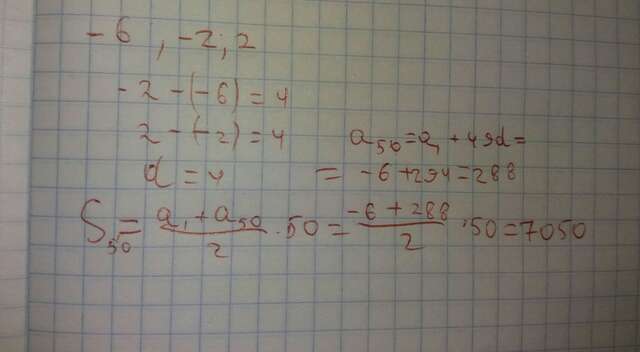 -6, -2; 2
-2-(-6)=4
2-(-2)=4
d=4
a₅₀=a₁+49d=
=-6+294=288
S₅₀=(a₁+a₅₀)/2·50=(-6+288)/2·50=7050